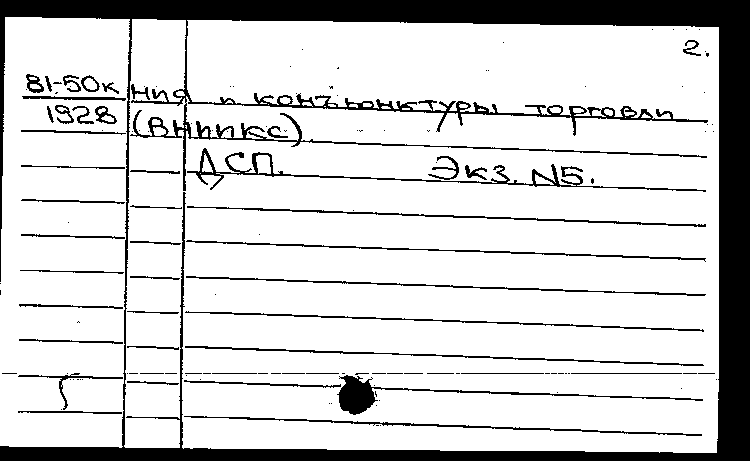 2.
81-50к ния и конъюнктуры торговли
1928 (ВНИИКС)
ДСП. Экз. N5.